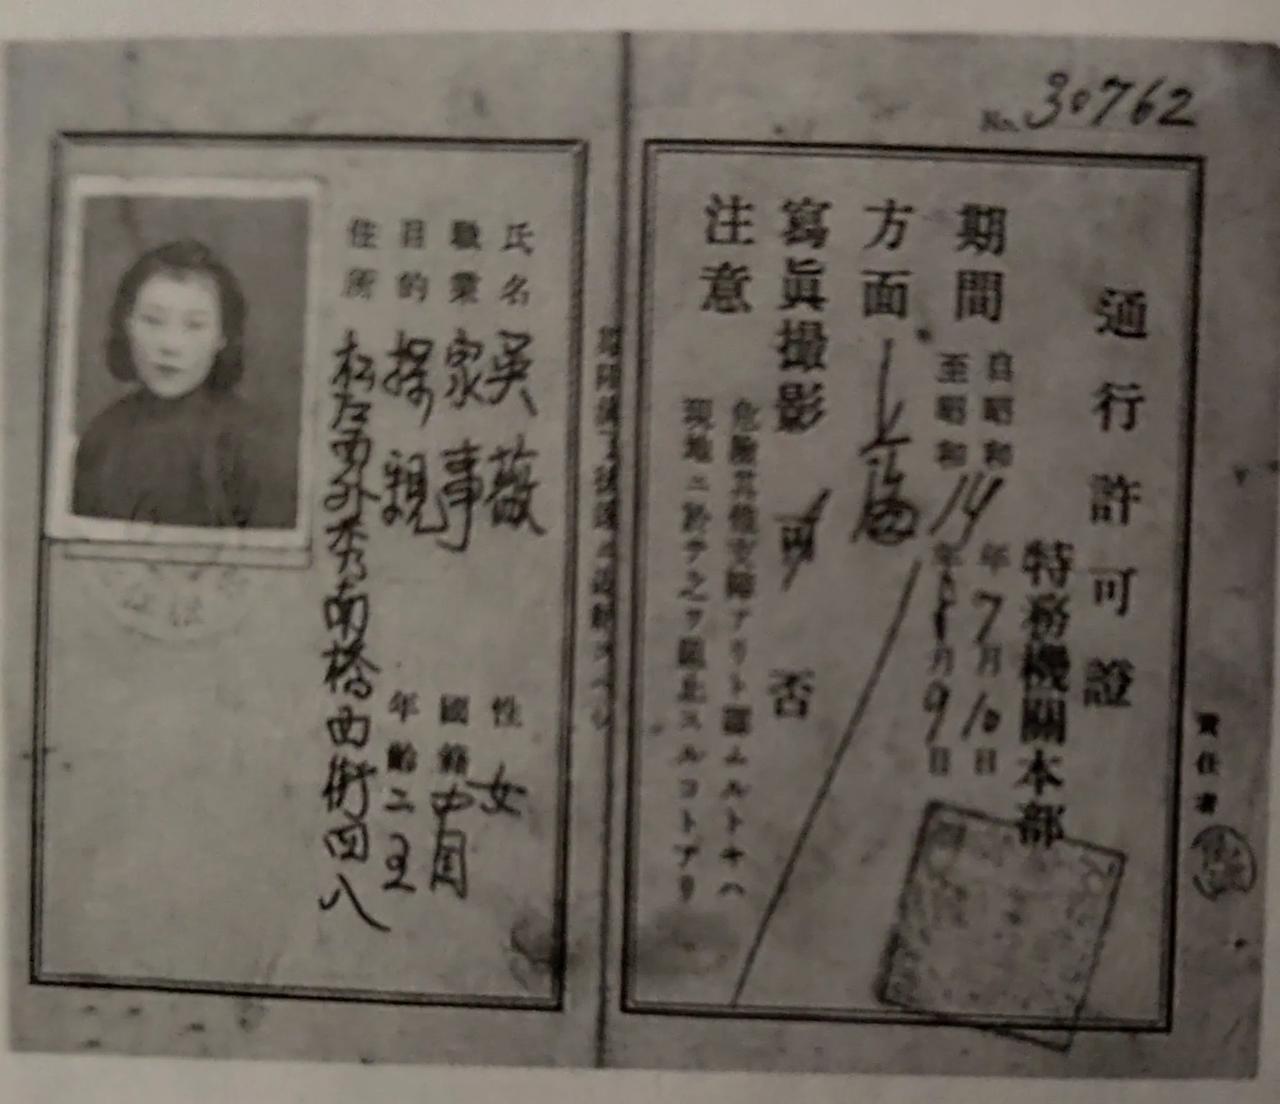 No. 30762
通行許可證
特務機關本部
期間 自昭和 年7月10日
至昭和14年 月9日
方面 上海
寫眞撮影 可 否
注意
危險其他支障アリト認ムルトキハ
現地ニ於テ之ヲ阻止スルコトアリ
責任者
氏名 吳薇 性 女
職業 家事 國籍 中国
目的 探親 年齡 二五
住所 松江西外秀南橋西街四八